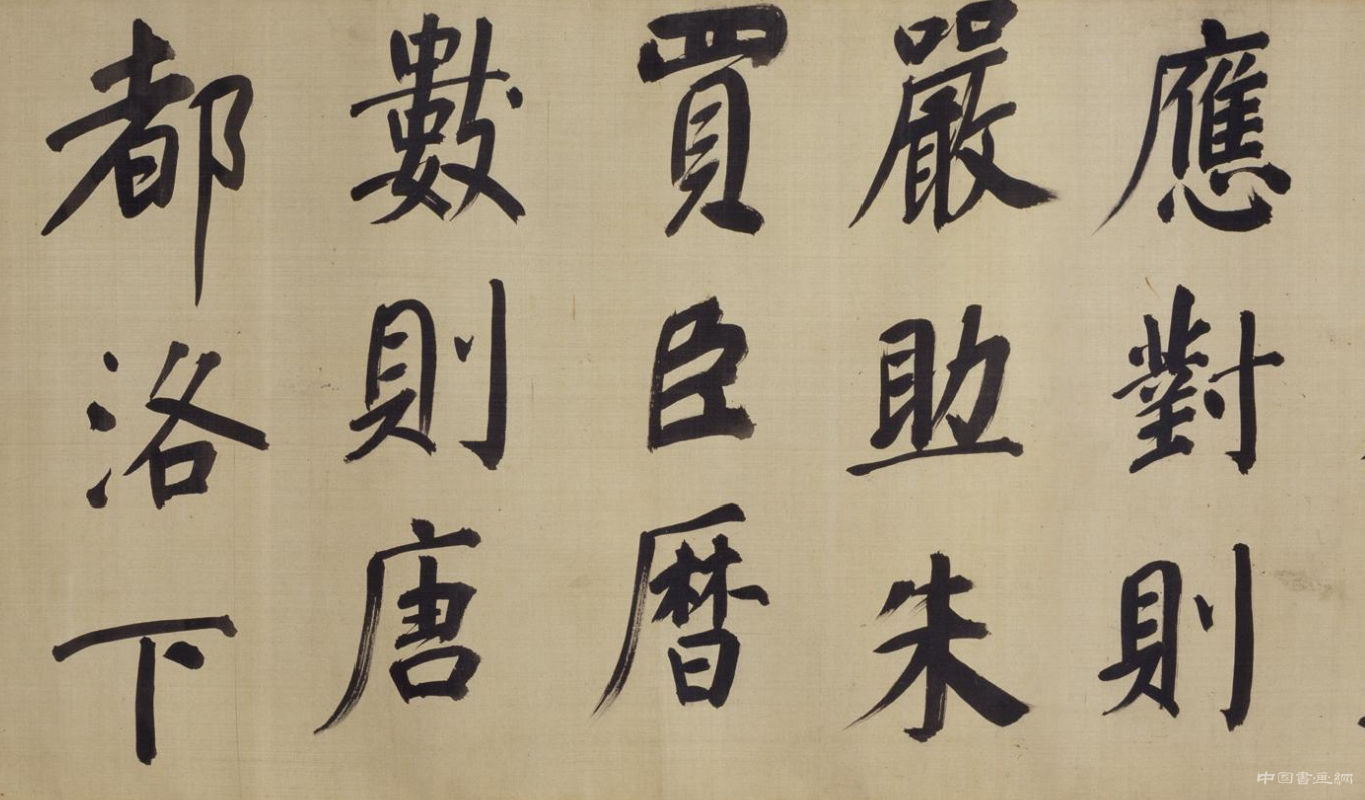 應對則
嚴助朱
買臣曆
數則唐
都洛下
中国書画網